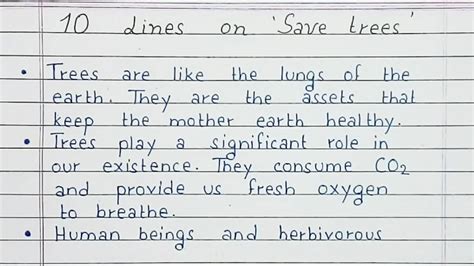 10 Lines on 'Save trees'
• Trees are like the lungs of the
earth. They are the assets that
keep the mother earth healthy.
• Trees play a significant role in
our existence. They consume CO₂
and provide us fresh oxygen
to breathe.
• Human beings and herbivorous